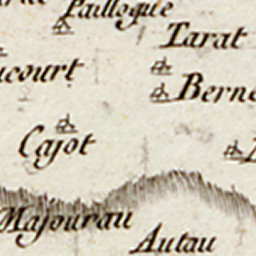 Paillogue
Tarat
court
Berne
Cajot
Majourau
Autau